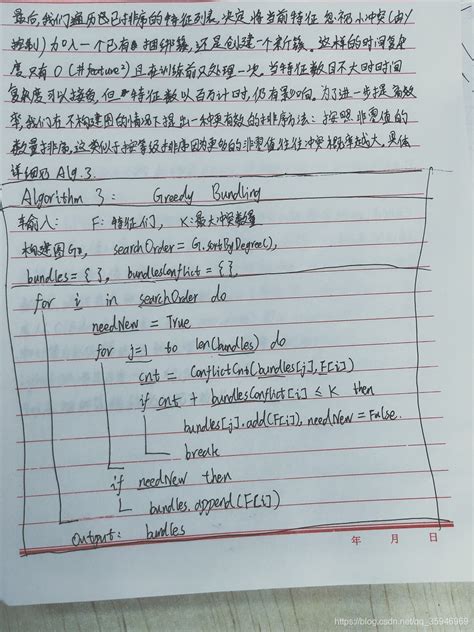 最后,我们遍历已排序的特征列表,决定将当前特征忽视小冲突(由γ
控制)加入一个已有捆绑簇,还是创建一个新簇。这样的时间复杂
度只有O(#feature²)且在训练前只处理一次。当特征数目不大时时间
复杂度可以接受,但#特征数以百万计时,仍有影响。为了进一步提高效
率,我们在不构建图的情况下提出一种更有效的排序方法:按照非零值的
数量排序,这类似于按等级排序因为更多的非零值往往冲突概率越大,具体
详细见Alg.3.
Algorithm 3: Greedy Bundling
输入: F:特征们, K:最大冲突数量
构建图G, searchOrder = G.sortByDegree(),
bundles={ }, bundlesConflict={ },
for i in searchOrder do
needNew = True
for j=1 to len(bundles) do
cnt = ConflictCnt(bundles[j],F[i])
if cnt + bundlesConflict[i] ≤ K then
bundles[j].add(F[i]), needNew = False.
break
if needNew then
bundles.append(F[i])
Output: bundles
年 月 日
https://blog.csdn.net/qq_35946969